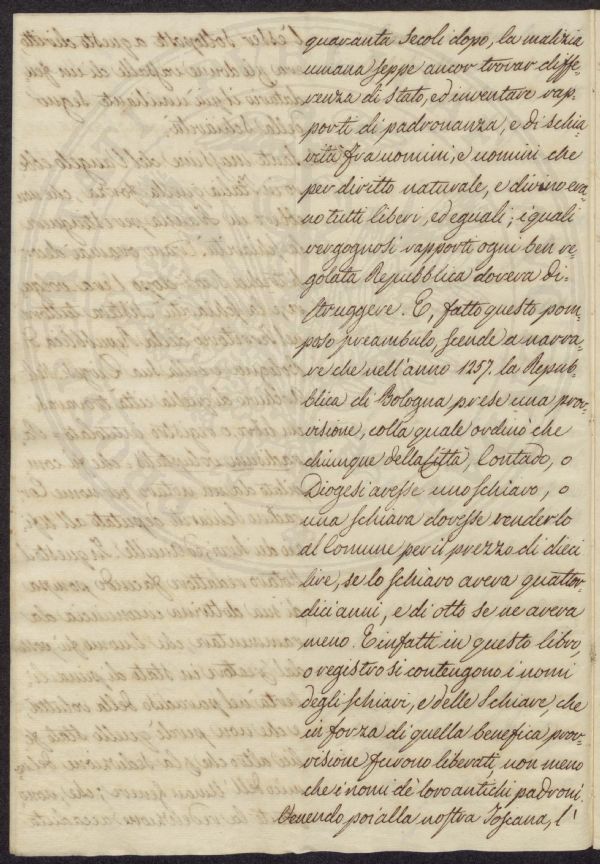 quaranta secoli dopo, la malizia
umana seppe ancor trovar diffe-
renza di stato, ed inventare rap-
porti di padronanza, e di schia-
vitù fra uomini, e uomini che
per diritto naturale, e divino era-
no tutti liberi, ed eguali; i quali
vergognosi rapporti ogni ben re-
golata Repubblica doveva di-
struggere. E, fatto questo pom-
poso preambulo, scende a narra-
re che nell'anno 1257. la Repub-
blica di Bologna prese una prov-
visione, colla quale ordinò che
chiunque della Città, Contado, o
Diogesi avesse uno schiavo, o
una schiava dovesse venderlo
al Comune per il prezzo di dieci
lire, se lo schiavo aveva quattor-
dici anni, e di otto se ne aveva
meno. E infatti in questo libro,
o registro si contengono i nomi
degli schiavi, e delle Schiave, che
in forza di quella benefica prov-
visione furono liberati, non meno
che i nomi de' loro antichi padroni.
Venendo poi alla nostra Toscana, l'